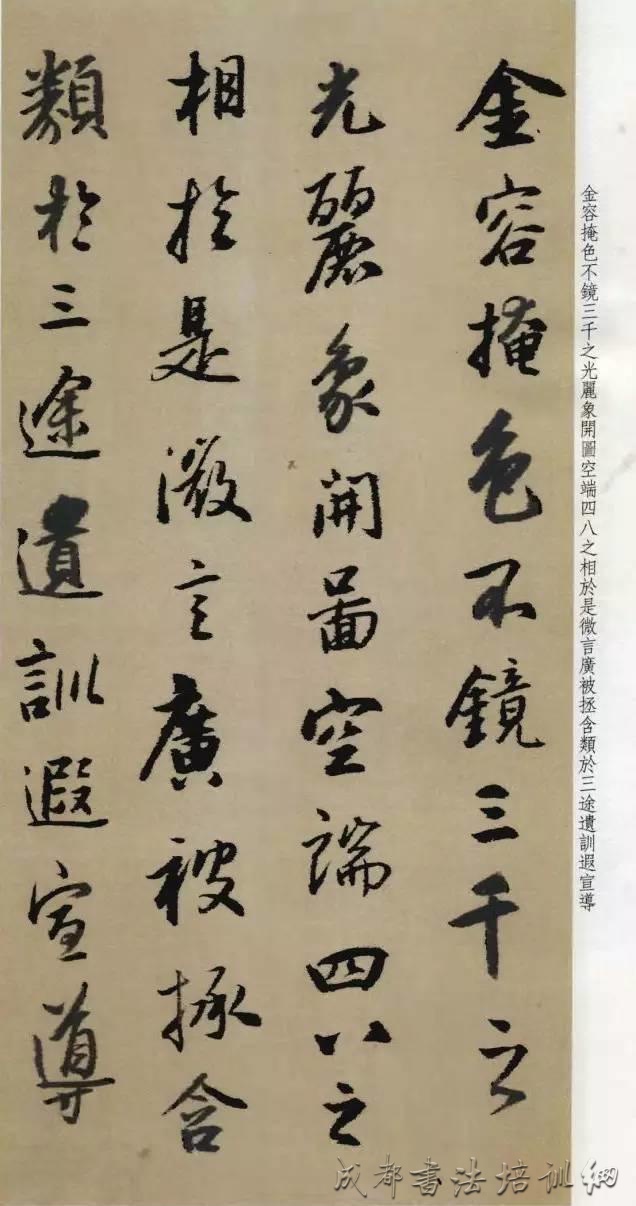 金容掩色不鏡三千之
光麗象開圖空端四八之
相於是微言廣被拯含
類於三途遺訓遐宣導
金容掩色不鏡三千之光麗象開圖空端四八之相於是微言廣被拯含類於三途遺訓遐宣導
成都书法培训网